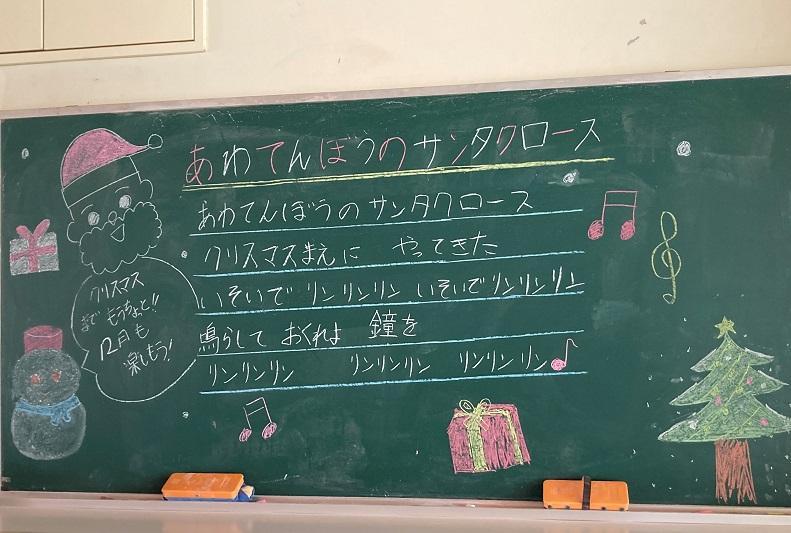 あわてんぼうのサンタクロース
あわてんぼうのサンタクロース
クリスマスまえに やってきた
いそいで リンリンリン いそいでリンリンリン
鳴らして おくれよ 鐘を
リンリンリン リンリンリン リンリンリン
クリスマス
まで もうちょっと!!
12月も
楽しもう!